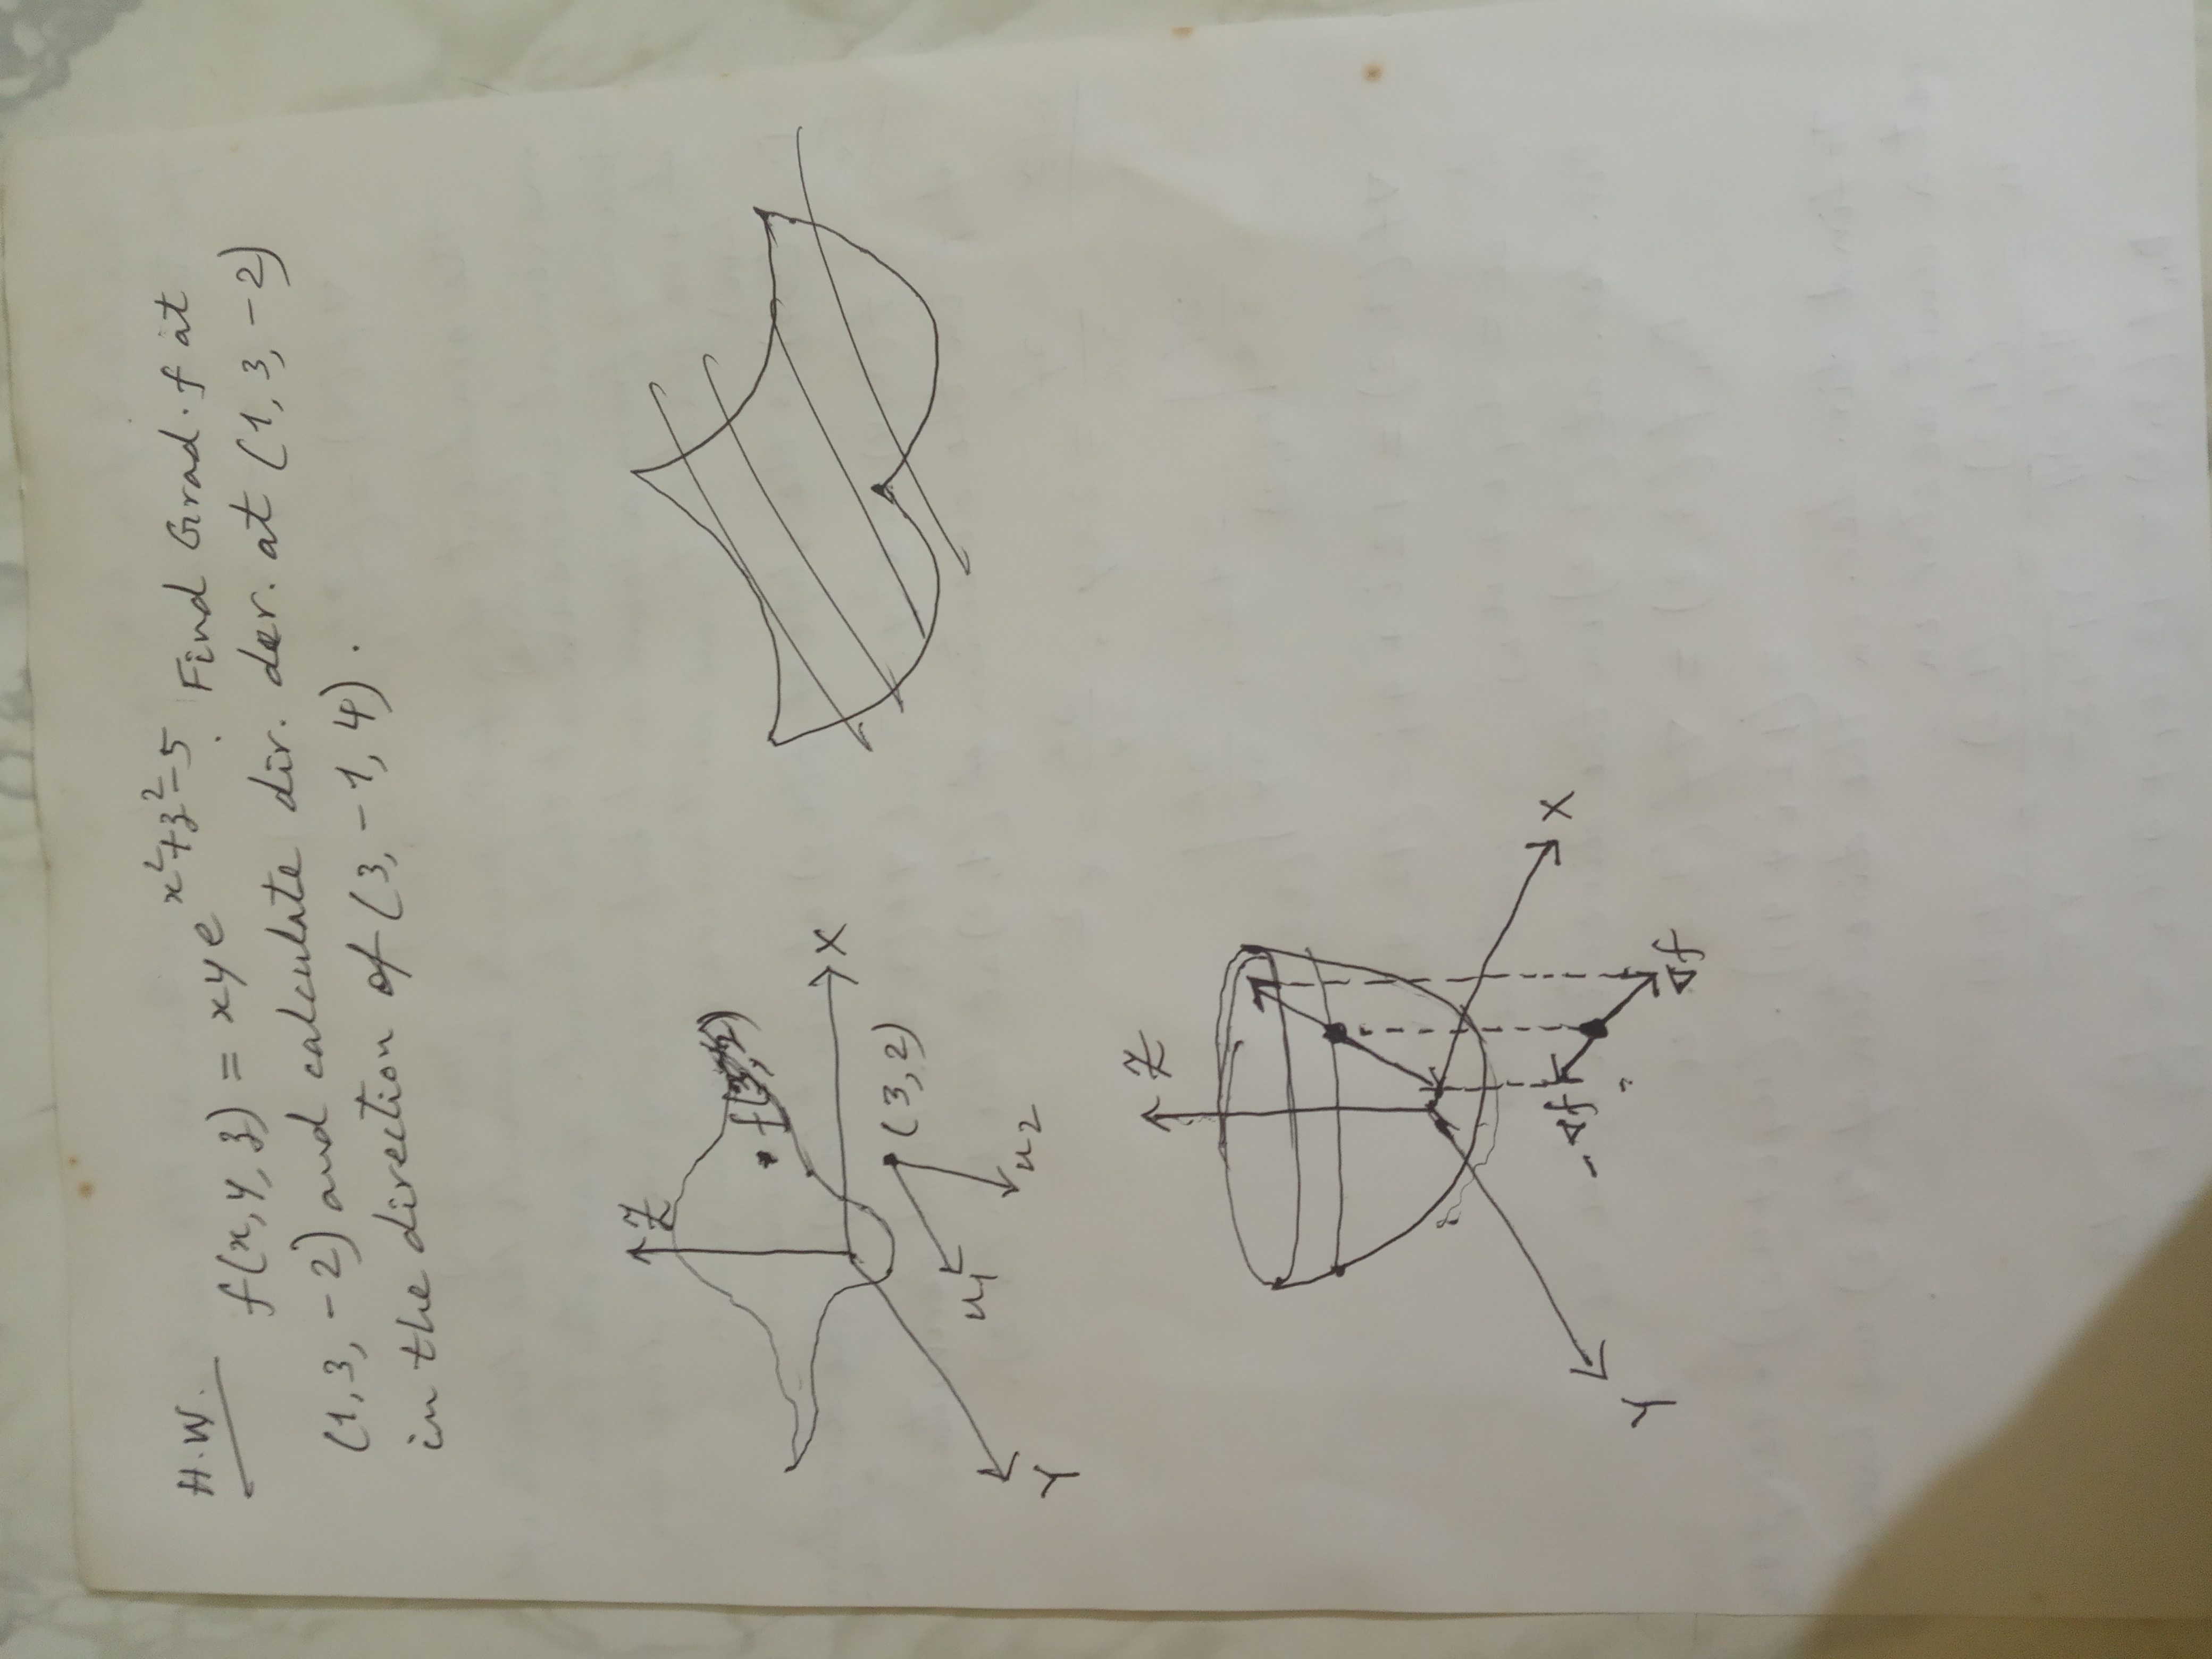 H.W.
f(x,y,z) = xye^{x²+z²-5}. Find Grad. f at
(1,3,-2) and calculate dir. der. at (1,3,-2)
in the direction of (3,-1,4).
Z
f(3,2)
X
(3,2)
u₁
u₂
Y
Z
X
-∇f
∇f
Y